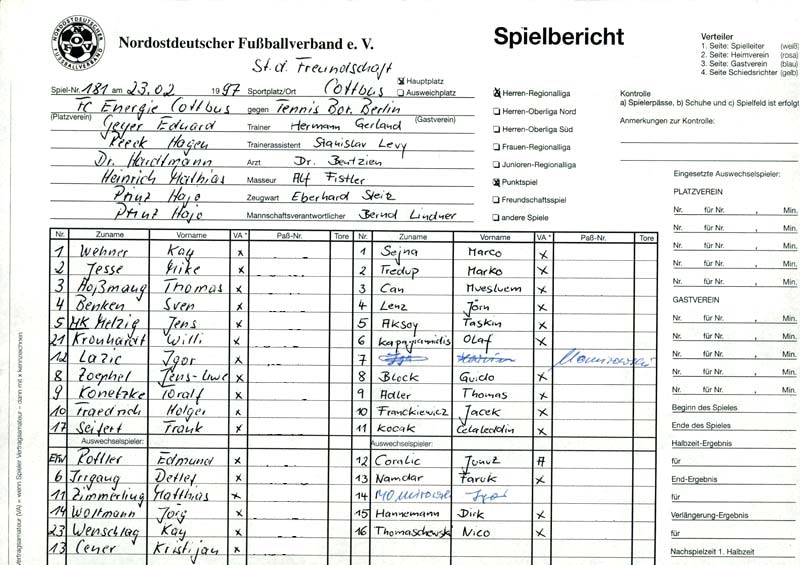 NORDOSTDEUTSCHER
NOFV
FUSSBALLVERBAND
Nordostdeutscher Fußballverband e. V.
Spielbericht
Verteiler
1. Seite: Spielleiter (weiß)
2. Seite: Heimverein (rosa)
3. Seite: Gastverein (blau)
4. Seite Schiedsrichter (gelb)
St. d. Freundschaft
Spiel-Nr. 181 am 23.02 1997 Sportplatz/Ort Cottbus
Hauptplatz
Ausweichplatz
FC Energie Cottbus gegen Tennis Bor. Berlin
(Platzverein) (Gastverein)
Geyer Eduard Trainer Hermann Gerland
Reeck Hagen Trainerassistent Stanislav Levy
Dr. Hardtmann Arzt Dr. Bentzien
Heinrich Mathias Masseur Alf Fistler
Prinz Hajo Zeugwart Eberhard
Prinz Hajo Mannschaftsverantwortlicher Bernd Lindner
Herren-Regionalliga
Herren-Oberliga Nord
Herren-Oberliga Süd
Frauen-Regionalliga
Junioren-Regionalliga
Punktspiel
Freundschaftsspiel
andere Spiele
Kontrolle
a) Spielerpässe, b) Schuhe und c) Spielfeld ist erfolgt
Anmerkungen zur Kontrolle:
Nr. Zuname Vorname VA * Paß-Nr. Tore Nr. Zuname Vorname VA * Paß-Nr. Tore
1 Wehner Kay x 1 Sejna Marco x
2 Jesse Mike x 2 Tredup Marko x
3 Hoßmang Thomas x 3 Can Muesluem x
4 Benken Sven x 4 Lenz Jörn x
5 MK Melzig Jens x 5 Aksoy Taskin x
21 Kronhardt Willi x 6 Kapagiannidis Olaf x
12 Lazic Igor x 7
8 Zoephel Jens-Uwe x 8 Block Guido x
9 Konetzke Toralf x 9 Adler Thomas x
10 Fraedrich Holger x 10 Franckiewicz Jacek x
17 Seifert Frank x 11 Kocak Celaleddin x
Auswechselspieler: Auswechselspieler:
ETW Rottler Edmund x 12 Coralic Junuz A
6 Irrgang Detlef x 13 Namdar Faruk x
11 Zimmerling Matthias x 14
14 Woltmann Jörg x 15 Hannemann Dirk x
23 Wenschlag Kay x 16 Thomaschewski Nico x
13 Cener Kristijan x
Eingesetzte Auswechselspieler:
PLATZVEREIN
Nr. für Nr. , Min.
Nr. für Nr. , Min.
Nr. für Nr. , Min.
Nr. für Nr. , Min.
Nr. für Nr. , Min.
GASTVEREIN
Nr. für Nr. , Min.
Nr. für Nr. , Min.
Nr. für Nr. , Min.
Nr. für Nr. , Min.
Nr. für Nr. , Min.
Beginn des Spieles
Ende des Spieles
Halbzeit-Ergebnis
für
End-Ergebnis
für
Verlängerung-Ergebnis
für
Nachspielzeit 1. Halbzeit
Vertragsamateur (VA) = wenn Spieler Vertragsamateur – dann mit x kennzeichnen